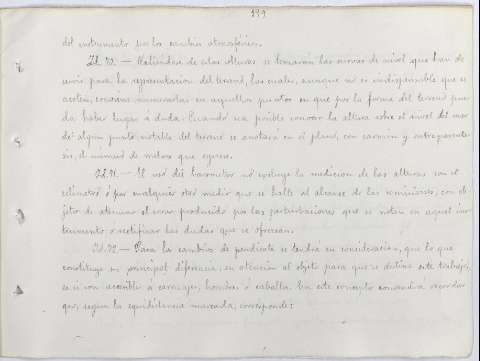 199
del instrumento por los cambios atmosféricos.
Id. 70.— Valiéndose de estas alturas se tomarán las curvas de nivel que han de
servir para la representacion del terreno, las cuales, aunque no es indispensable que se
acoten, convendrá numerarlas en aquellos puntos en que por la forma del terreno pue-
da haber lugar á duda. Cuando sea posible conocer la altura sobre el nivel del mar
de algun punto notable del terreno se anotará en el plano, con carmin y entre parente-
sis, el número de metros que exprese.
Id. 71.— El uso del barómetro no excluye la medicion de las alturas con el
eclímetro ó por cualquier otro medio que se halle al alcance de las comisiones, con ob-
jeto de atenuar el error producido por las perturbaciones que se noten en aquel ins-
trumento ó rectificar las dudas que se ofrezcan.
Id. 72.— Para los cambios de pendiente se tendrá en consideracion, que lo que
constituye su principal diferencia, en atencion al objeto para que se destina este trabajo,
es si son accesibles á carruajes, hombres ó caballos. En este concepto convendrá recordar
que, segun la equidistancia marcada, corresponde: